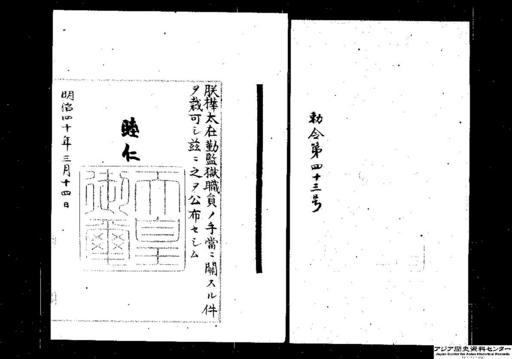 勅令第四十三号
朕樺太在勤監獄職員ノ手當ニ關スル件
ヲ裁可シ茲ニ之ヲ公布セシム
睦仁
天皇
御璽
明治四十年三月十四日
アジア歴史資料センター
Japan Center for Asian Historical Records